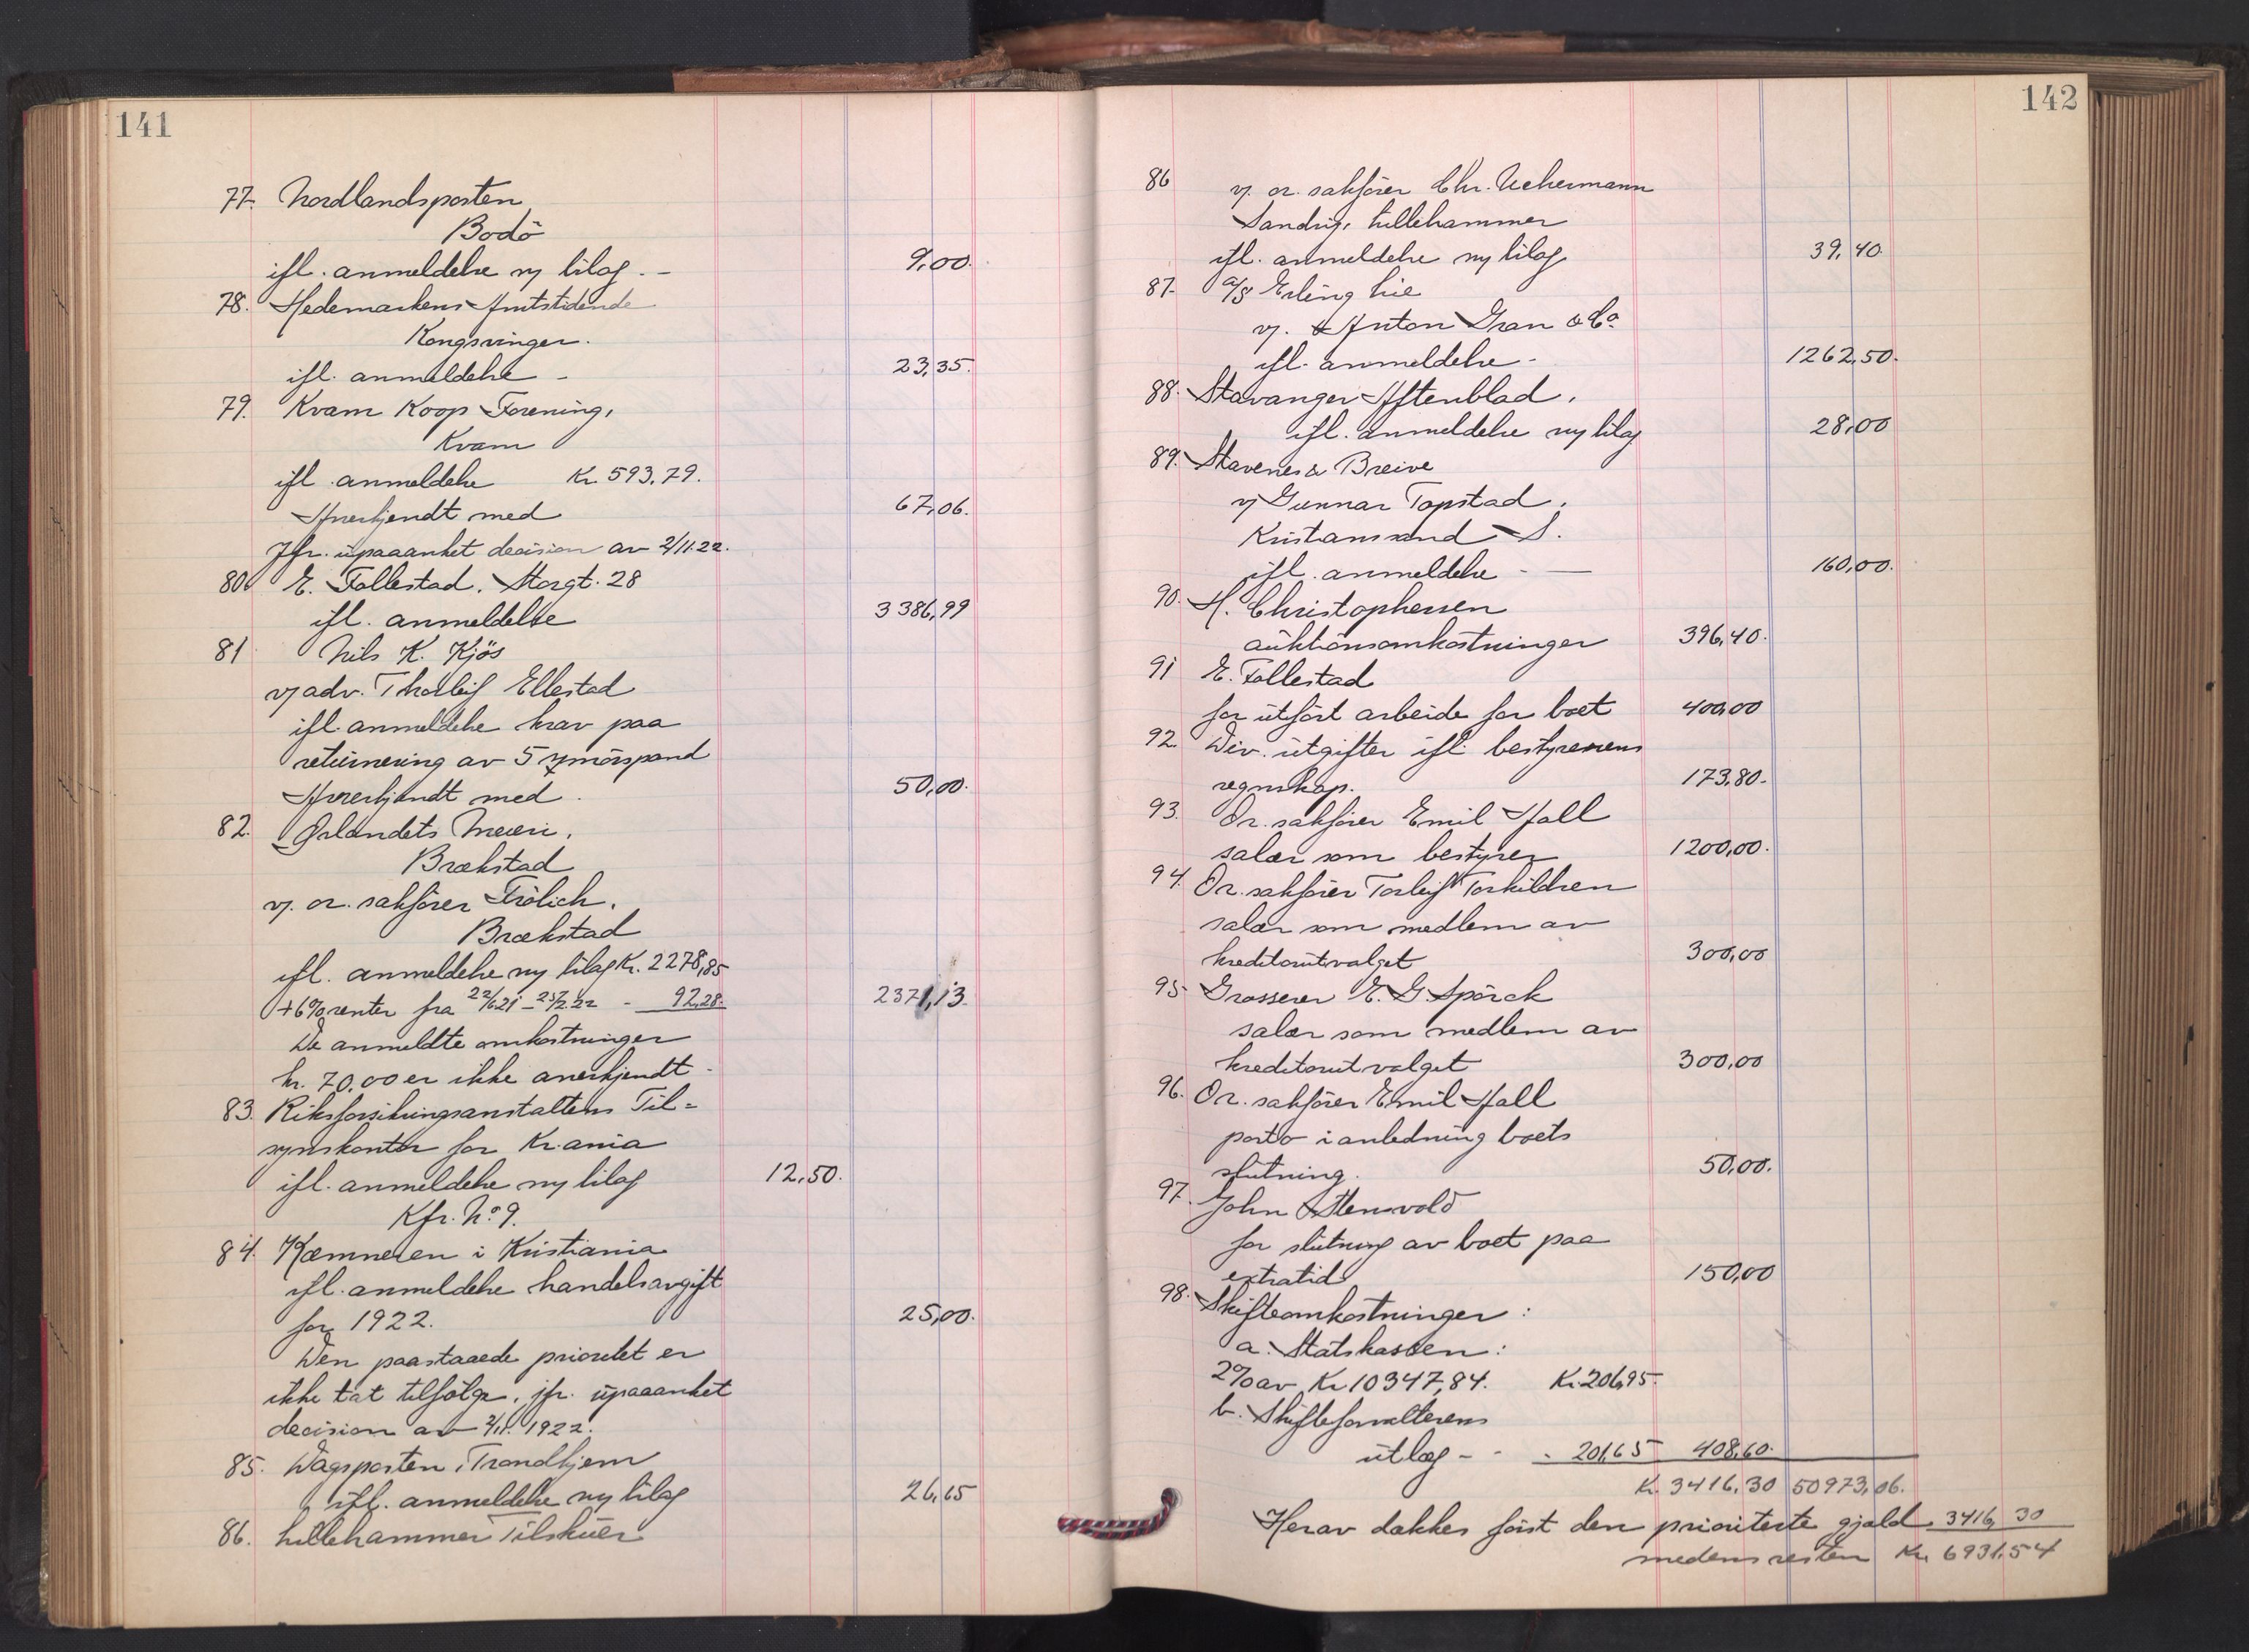 141
77. Nordlandsposten
Bodö
ifl. anmeldelse m/ bilag. – 9,00.
78. Hedemarkens Amtstidende
Kongsvinger.
ifl. anmeldelse – 23,35.
79. Kvam Koop Forening,
Kvam
ifl. anmeldelse Kr. 593,79.
Anerkjendt med 67,06.
Jfr. upaaanket decision av 2/11.22.
80. E. Follestad. Storgt. 28
ifl. anmeldelse 3386,99
81 Nils K. Kjös
v/ adv. Thorleif Ellestad
ifl. anmeldelse krav paa
returnering av 5 smörspand
Anerkjendt med. 50,00.
82. Ørlandets Meieri,
Brækstad
v/. or. sakförer Frölich,
Brækstad
ifl. anmeldelse m/ bilag Kr. 2278,85
+ 6% renter fra 22/6 21 – 25/2 22 - 92,28. 2371,13.
De anmeldte omkostninger
kr. 70,00 er ikke anerkjendt -
83. Riksforsikringsanstaltens Til=
synskontor for Kr.ania
ifl. anmeldelse m/ bilag 12,50.
Kfr. No. 9.
84. Kæmneren i Kristiania
ifl. anmeldelse handelsavgift
for 1922. 25,00.
Den paastaaede prioritet er
ikke tat tilfölge, jfr. upaaanket
decision av 2/11. 1922.
85. Dagsposten, Trondhjem
ifl. anmeldelse m/ bilag 26,65
86. Lillehammer Tilskuer
142
86 v/. or. sakförer Chr. Uchermann
Sandvig, Lillehammer
ifl. anmeldelse m/ bilag 39,40.
87. A/S Erling Lie
v/. Anton Gran & Co.
ifl. anmeldelse - 1262,50.
88. Stavanger Aftenblad,
ifl. anmeldelse m/ bilag 28,00
89. Stavenes & Breive
v/ Gunnar Topstad,
Kristiansand S.
ifl. anmeldelse - – 160,00.
90. H. Christophersen
auktionsomkostninger 396,40.
91 E. Follestad
for utfört arbeide for boet 400,00
92. Div. utgifter ifl. bestyrerens
regnskap. 173,80.
93. Or. sakförer Emil Hall
salær som bestyrer 1200,00.
94. Or. sakförer Torleif Torkildsen
salær som medlem av
kreditorutvalget 300,00
95 Grosserer E. G. Spörck
salær som medlem av
kreditorutvalget 300,00
96. Or. sakförer Emil Hall
porto i anledning boets
slutning. 50,00.
97. John Stensvold
for slutning av boet paa
extratid 150,00
98. Skifteomkostninger:
a. Statskassen:
2% av Kr. 10347,84. Kr. 206,95.
b. Skifteforvalterens
utlæg - - - 201,65 408,60.
Kr. 3416,30 50973,06.
Herav dækkes först den prioriterte gjæld 3416,30
medens resten Kr. 6931,54